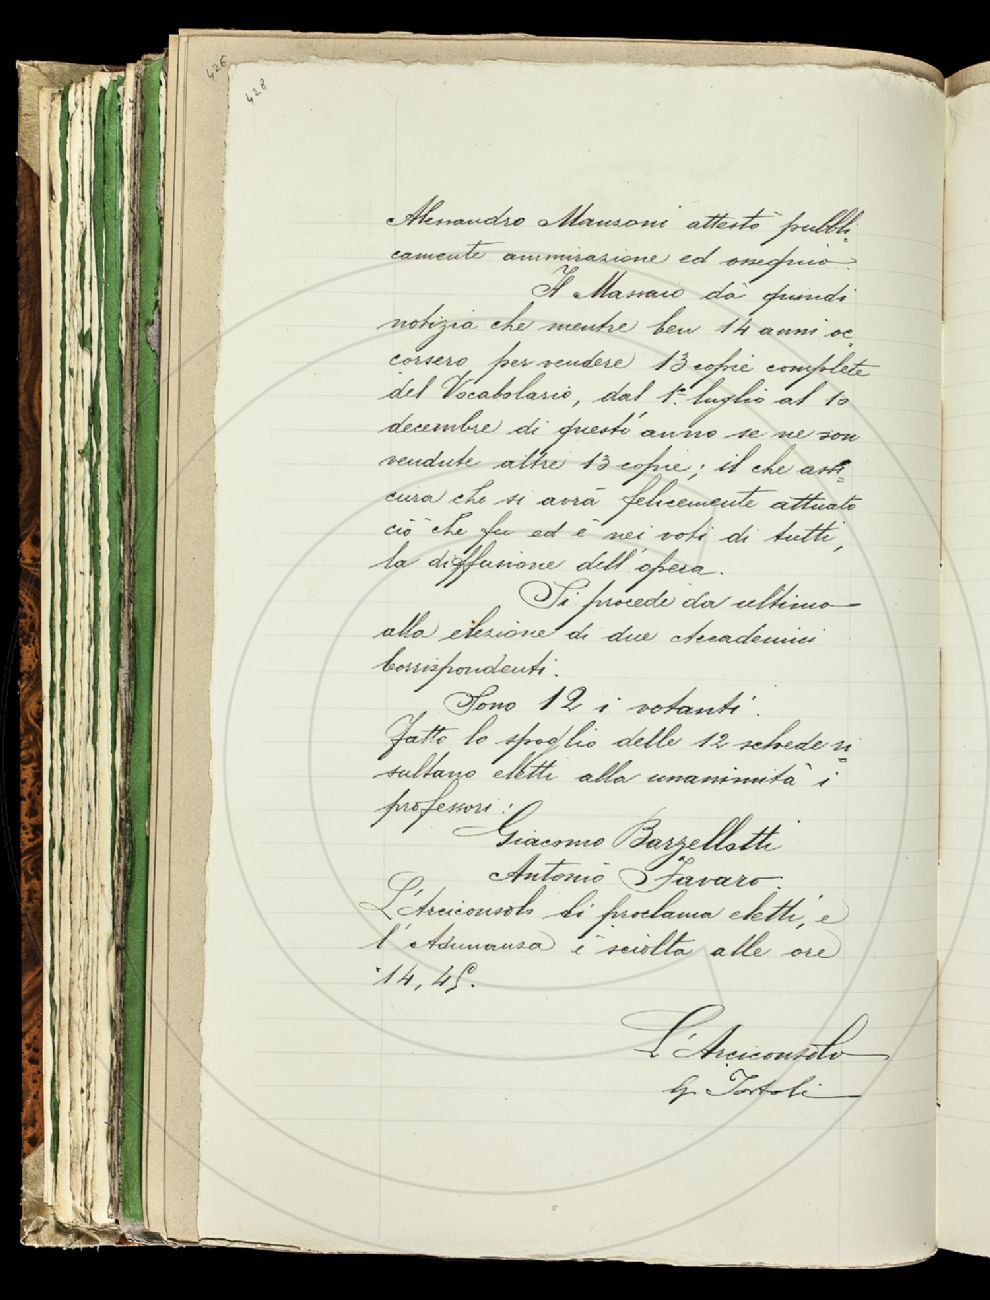 426
428
Alessandro Manzoni attestò pubbli=
camente ammirazione ed ossequio.
Il Massaio dà quindi
notizia che mentre ben 14 anni oc=
corsero per vendere 13 copie complete
del Vocabolario, dal 1º luglio al 10
decembre di questo anno se ne son
vendute altre 13 copie; il che assi=
cura che si avrà felicemente attuato
ciò che fu ed è nei voti di tutti,
la diffusione dell'opera.
Si procede da ultimo
alla elezione di due Accademici
Corrispondenti.
Sono 12 i votanti.
Fatto lo spoglio delle 12 schede ri=
sultano eletti alla unanimità i
professori:
Giacomo Barzellotti
Antonio Favaro.
L'Arciconsolo li proclama eletti, e
l'Adunanza è sciolta alle ore
14,45.
L'Arciconsolo
G. Tortoli